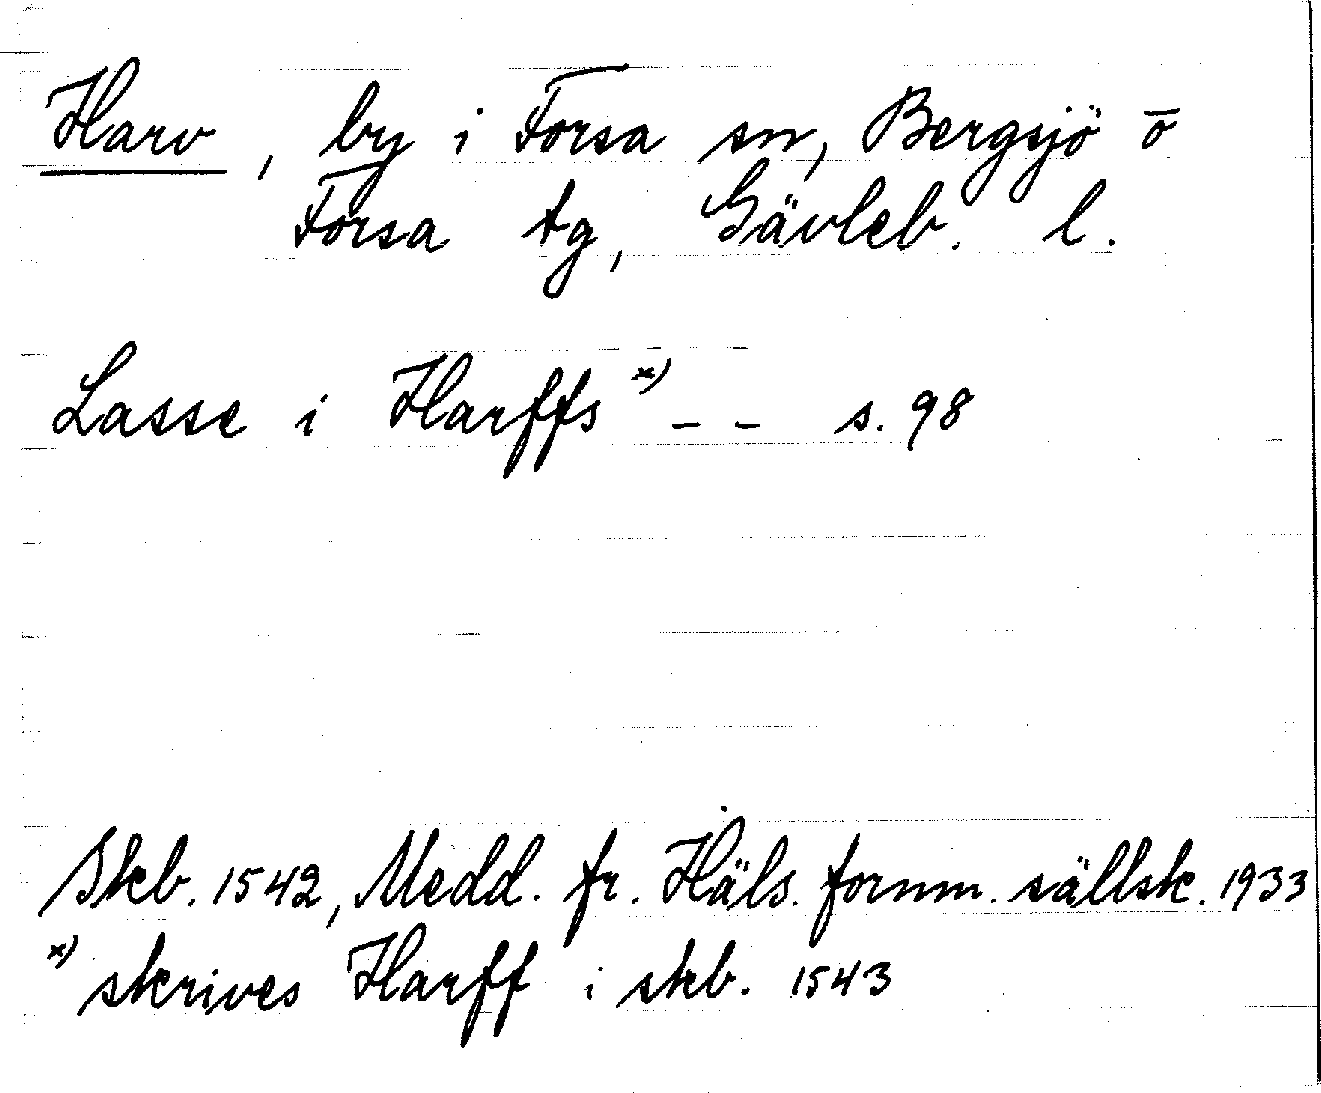 Harv, by i Forsa sn, Bergsjö o
Forsa tg, Gävleb. l.
Lasse i Harffs x) – – s. 98
Skb. 1542, Medd. fr. Häls. fornm. sällsk. 1933
x) skrives Harff i skb. 1543